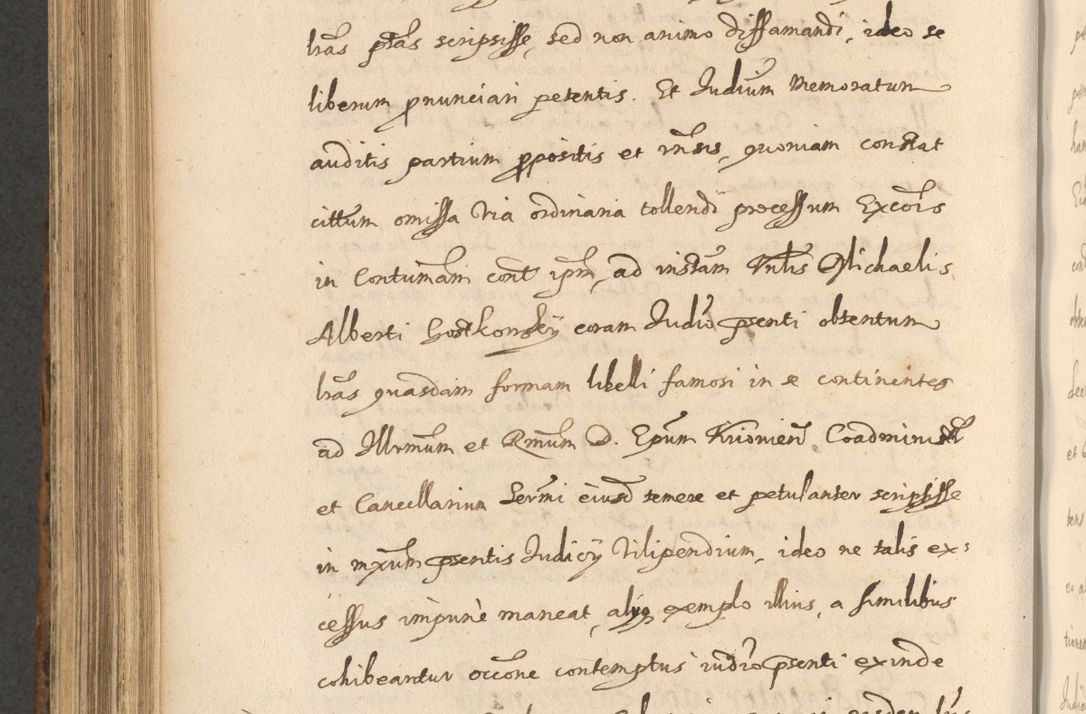 lras ptas scripsisse, sed non animo diffamandi, ideo se
liberum pnunciari petentis. Et Iudium memoratum
auditis partium ppositis et insis, quoniam constat
cittum omissa via ordinaria tollendi processum Excois
in Contumam cont ipm, ad instam Vnlis Michaelis
Alberti Gostkonsky coram Iudio psenti obtentum
lras quasdam formam libelli famosi in se continentes
ad Illrmum et Rmum D. Epum Kiiouien Coadminist
et Cancellarium Sermi eiusd temere et petulanter scripsisse
in mxum psentis Iudicij vilipendium, ideo ne talis ex:
cessus impune maneat, alijq exemplo illius, a similibus
cohibeantur occone contemptus iudio psenti exinde